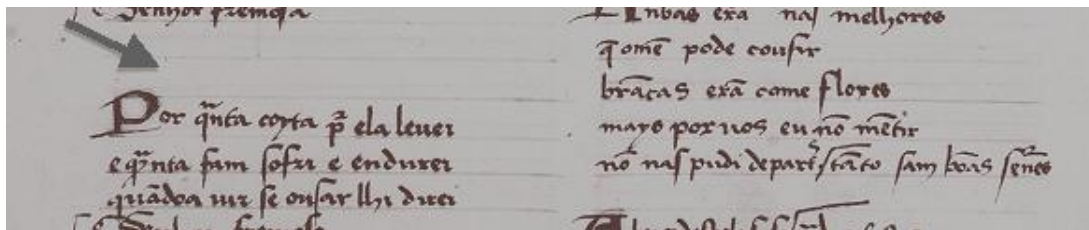 Senhor fremosa
Por qñta coyta p̃ ela leuei
e qñta fam sofri e endurei
quãdoa uir se ousar lhi direi
Senhor fremosa
nhas erã nas melhores
q̃ omẽ pode cousir
brãcas erã come flores
mays por uos eu nõ mẽtir
nõ nas pudi depart̃ tãto sam bõas señes